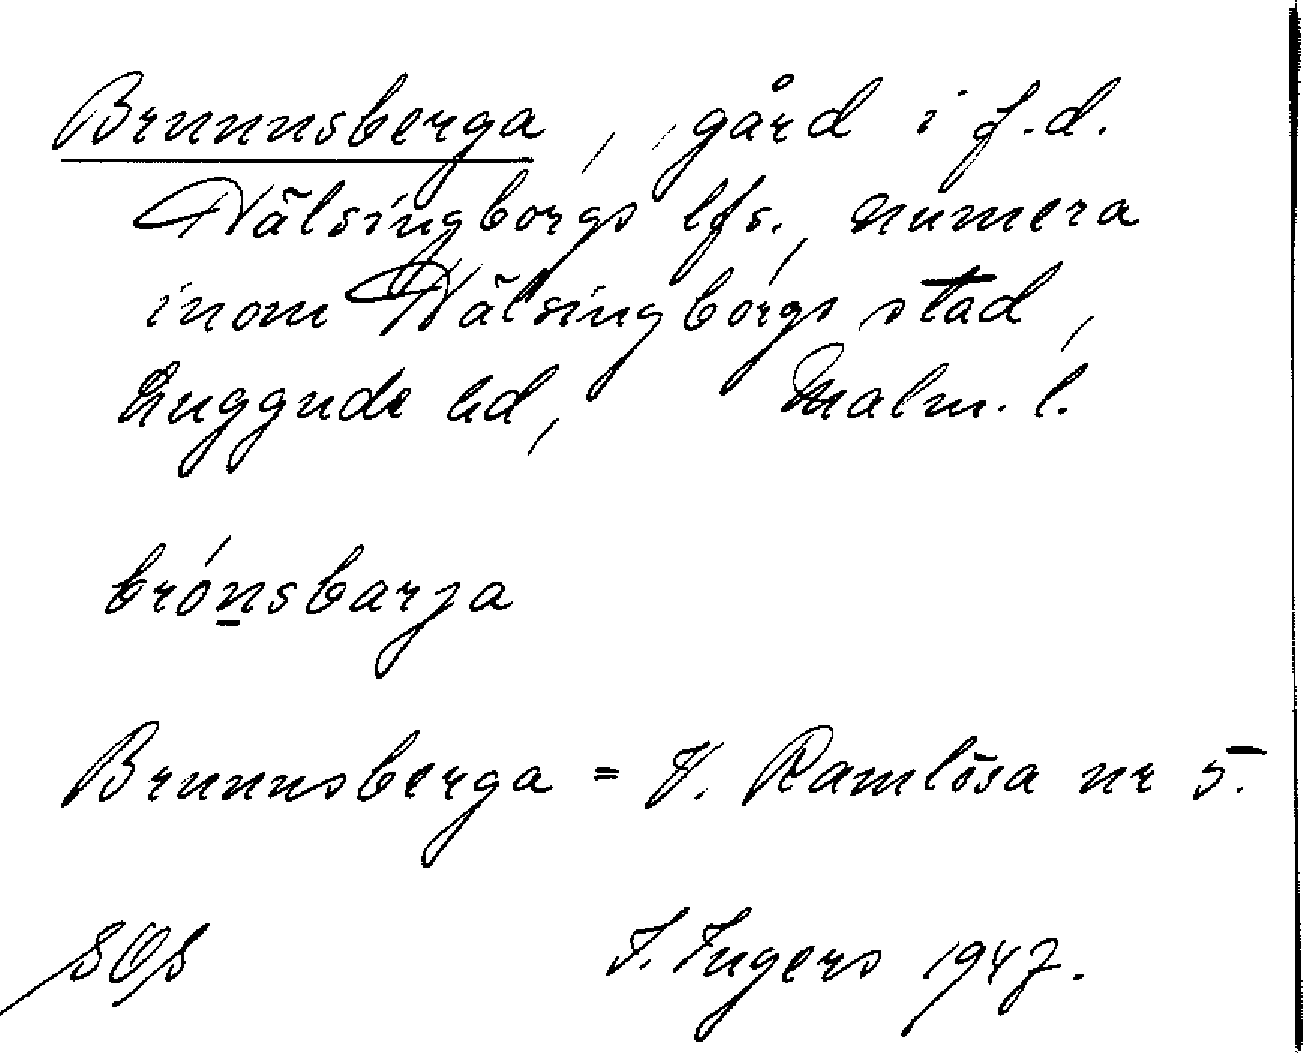 Brunnsberga, gård i f.d.
Hälsingborgs lfs., numera
inom Hälsingborgs stad,
Luggude hd, Malm. l.
brónsbarja
Brunnsberga = V. Ramlösa nr 5.
SOS I. Ingers 1947.